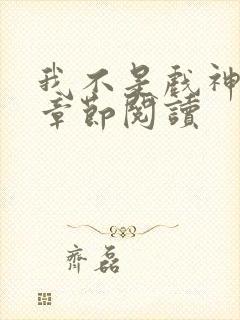 我不是戲神
章節閱讀
齊磊